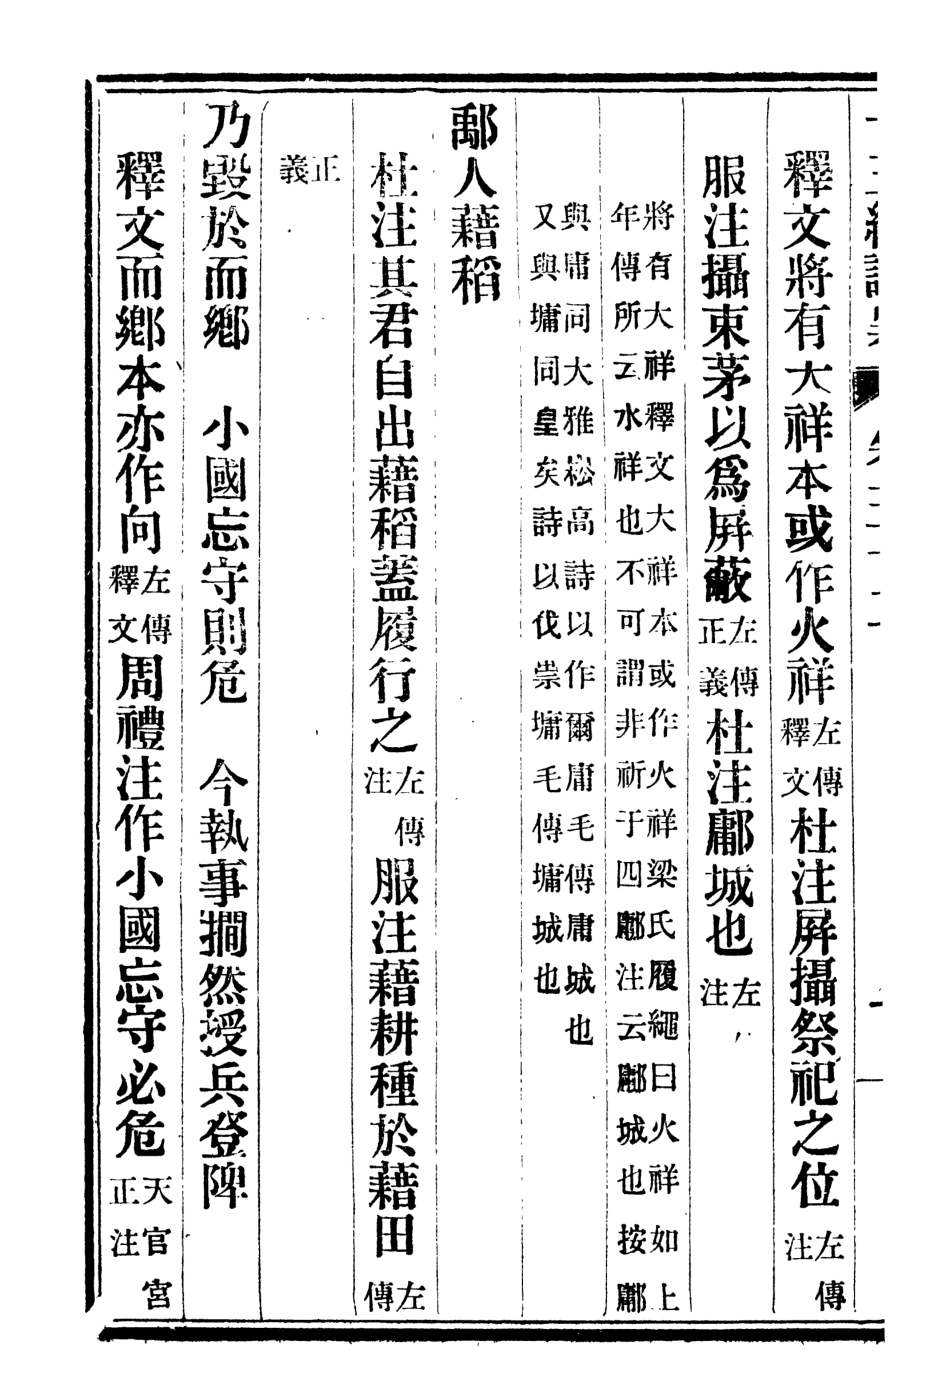 釋文將有大祥本或作火祥左傳釋文杜注屏攝祭祀之位左傳注
服注攝束茅以爲屏蔽左傳正義杜注鄘城也左注
將有大祥釋文大祥本或作火祥梁氏履繩曰火祥如上
年傳所云水祥也不可謂非祈于四鄘注云鄘城也按鄘
與庸同大雅崧高詩以作爾庸毛傳庸城也
又與墉同皇矣詩以伐崇墉毛傳墉城也
鄅人藉稻
杜注其君自出藉稻蓋履行之左傳注服注藉耕種於藉田左傳
正義
乃毀於而鄉　小國忘守則危　今執事撊然授兵登陴
釋文而鄉本亦作向左傳釋文周禮注作小國忘守必危天官宮正注